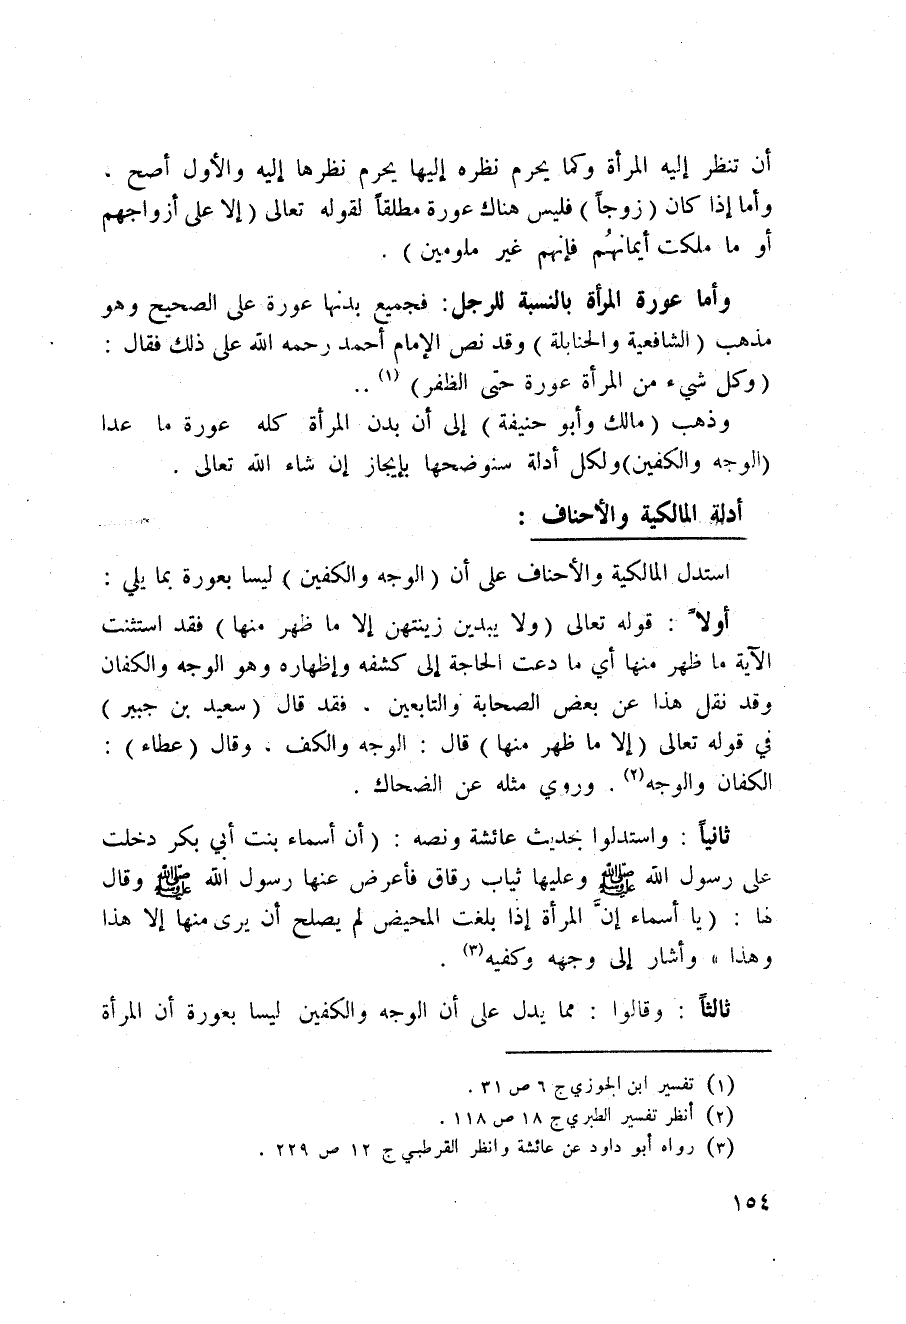 أن تنظر إليه المرأة وكما يحرم نظره إليها يحرم نظرها إليه والأول أصح .
وأما إذا كان ( زوجاً ) فليس هناك عورة مطلقاً لقوله تعالى ( إلا على أزواجهم
أو ما ملكت أيمانهُم فإنهم غير ملومين ) .
وأما عورة المرأة بالنسبة للرجل : فجميع بدنها عورة على الصحيح وهو
مذهب ( الشافعية والحنابلة ) وقد نص الإمام أحمد رحمه الله على ذلك فقال :
( وكل شيء من المرأة عورة حتى الظفر ) (١) ..
وذهب ( مالك وأبو حنيفة ) إلى أن بدن المرأة كله عورة ما عدا
(الوجه والكفين) ولكل أدلة سنوضحها بإيجاز إن شاء الله تعالى .
أدلة المالكية والأحناف :
استدل المالكية والأحناف على أن ( الوجه والكفين ) ليسا بعورة بما يلي :
أولاً : قوله تعالى ( ولا يبدين زينتهن إلا ما ظهر منها ) فقد استثنت
الآية ما ظهر منها أي ما دعت الحاجة إلى كشفه وإظهاره وهو الوجه والكفان
وقد نقل هذا عن بعض الصحابة والتابعين . فقد قال ( سعيد بن جبير )
في قوله تعالى ( إلا ما ظهر منها ) قال : الوجه والكف . وقال ( عطاء ) :
الكفان والوجه(٢) . وروي مثله عن الضحاك .
ثانياً : واستدلوا بحديث عائشة ونصه : ( أن أسماء بنت أبي بكر دخلت
على رسول الله ﷺ وعليها ثياب رقاق فأعرض عنها رسول الله ﷺ وقال
لها : ( يا أسماء إنَّ المرأة إذا بلغت المحيض لم يصلح أن يرى منها إلا هذا
وهذا » وأشار إلى وجهه وكفيه(٣) .
ثالثاً : وقالوا : مما يدل على أن الوجه والكفين ليسا بعورة أن المرأة
(١) تفسير ابن الجوزي ج ٦ ص ٣١ .
(٢) أنظر تفسير الطبري ج ١٨ ص ١١٨ .
(٣) رواه أبو داود عن عائشة وانظر القرطبي ج ١٢ ص ٢٢٩ .
١٥٤